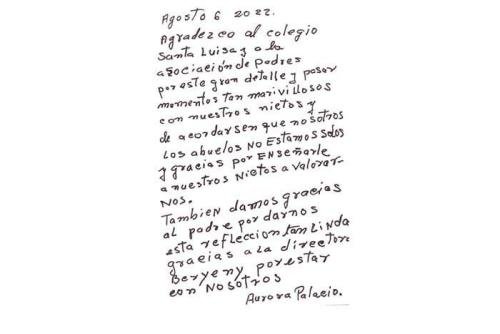 Agosto 6 2022.
Agradezco al colegio
Santa Luisa y a la
asociación de padres
por este gran detalle y pasar
momentos tan marivillosos
con nuestros nietos y
de acordarsen que nosotros
los abuelos NO EstAmos solos
y gracias por ENSEñarle
a nuestros Nietos a valorar-
NOS.
Tambien damos gracias
al padre por darnos
esta refleccion tan LiNda
gracias a la director
Beryeny por estar
con NOSOTROS
Aurora Palacio.